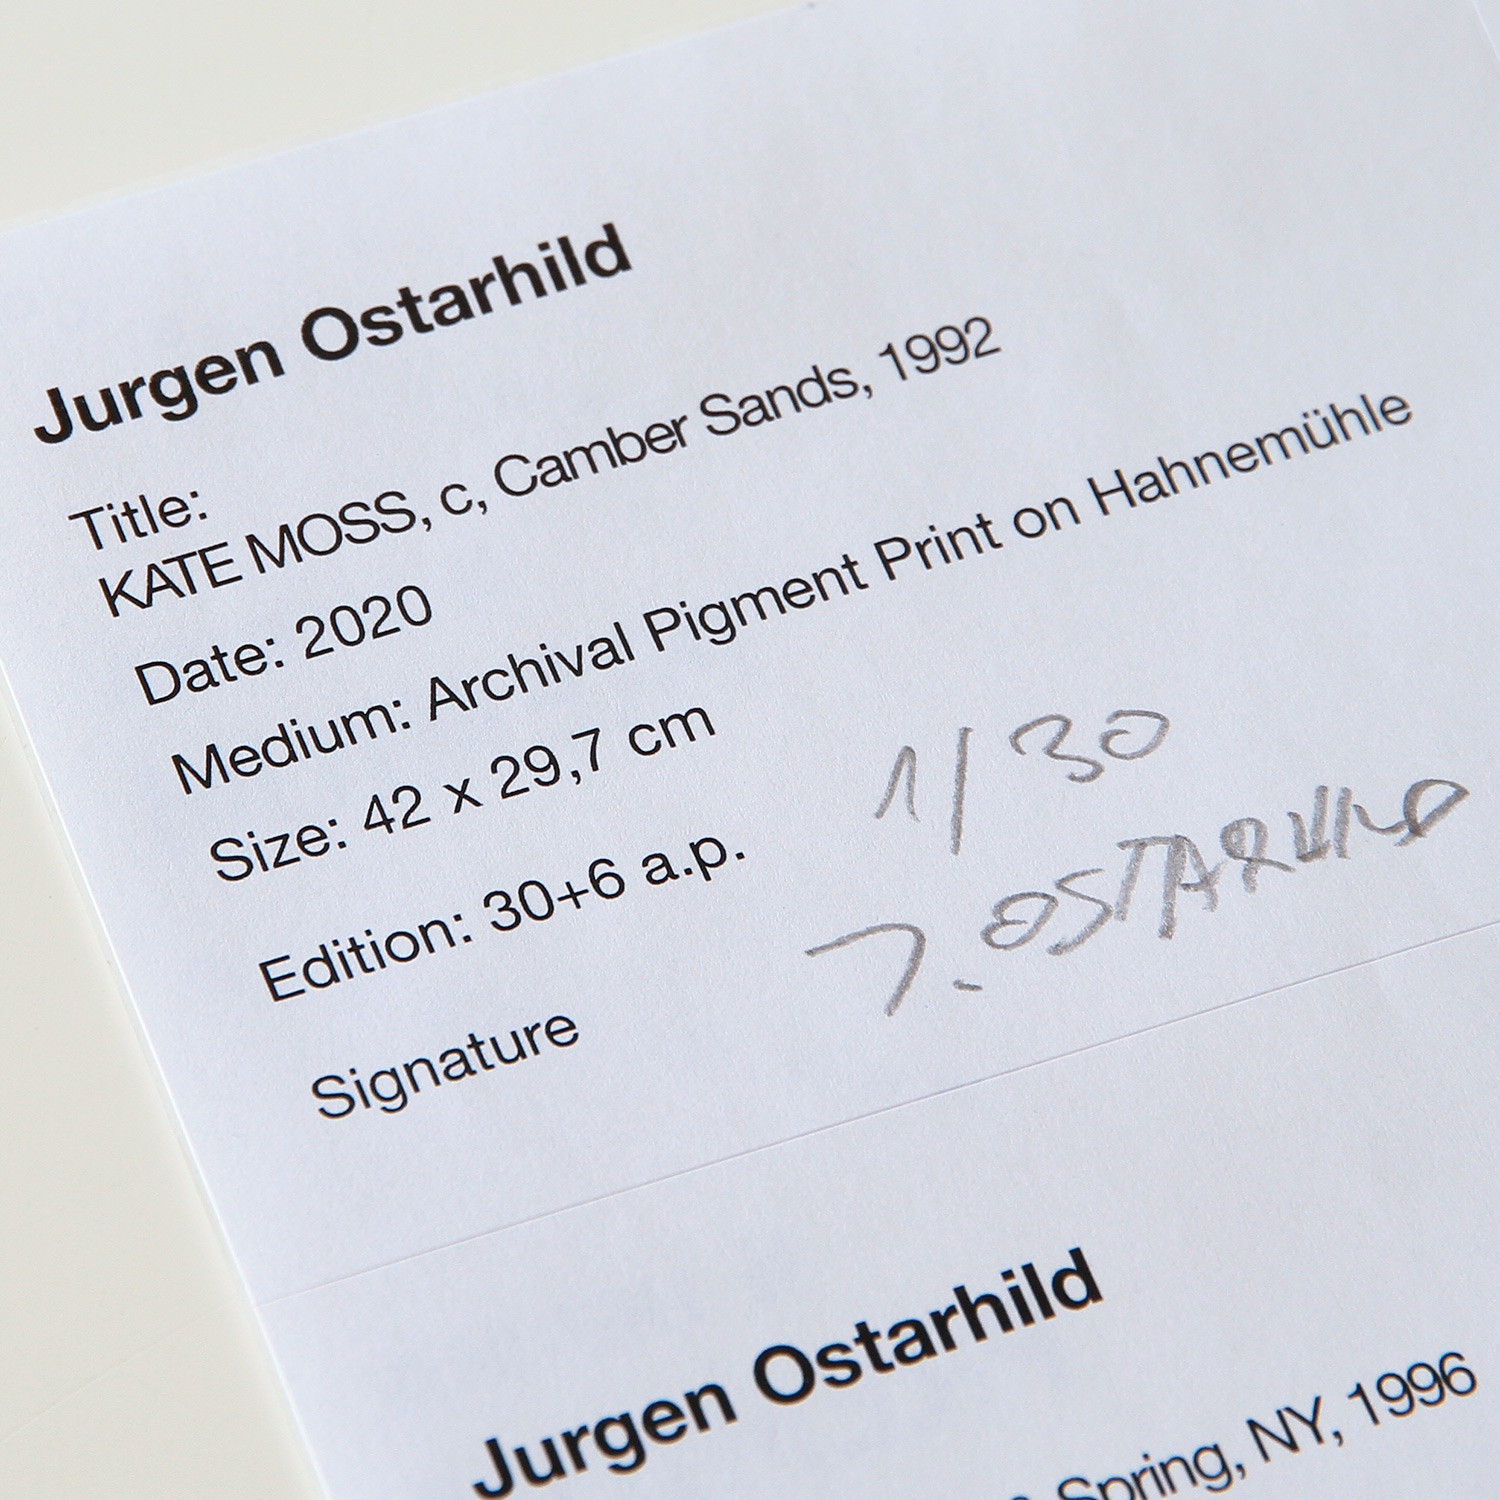 Jurgen Ostarhild
Title:
KATE MOSS, c, Camber Sands, 1992
Date: 2020
Medium: Archival Pigment Print on Hahnemühle
Size: 42 x 29,7 cm
1/30
Edition: 30+6 a.p.
J. OSTARHILD
Signature
Jurgen Ostarhild
Spring, NY, 1996